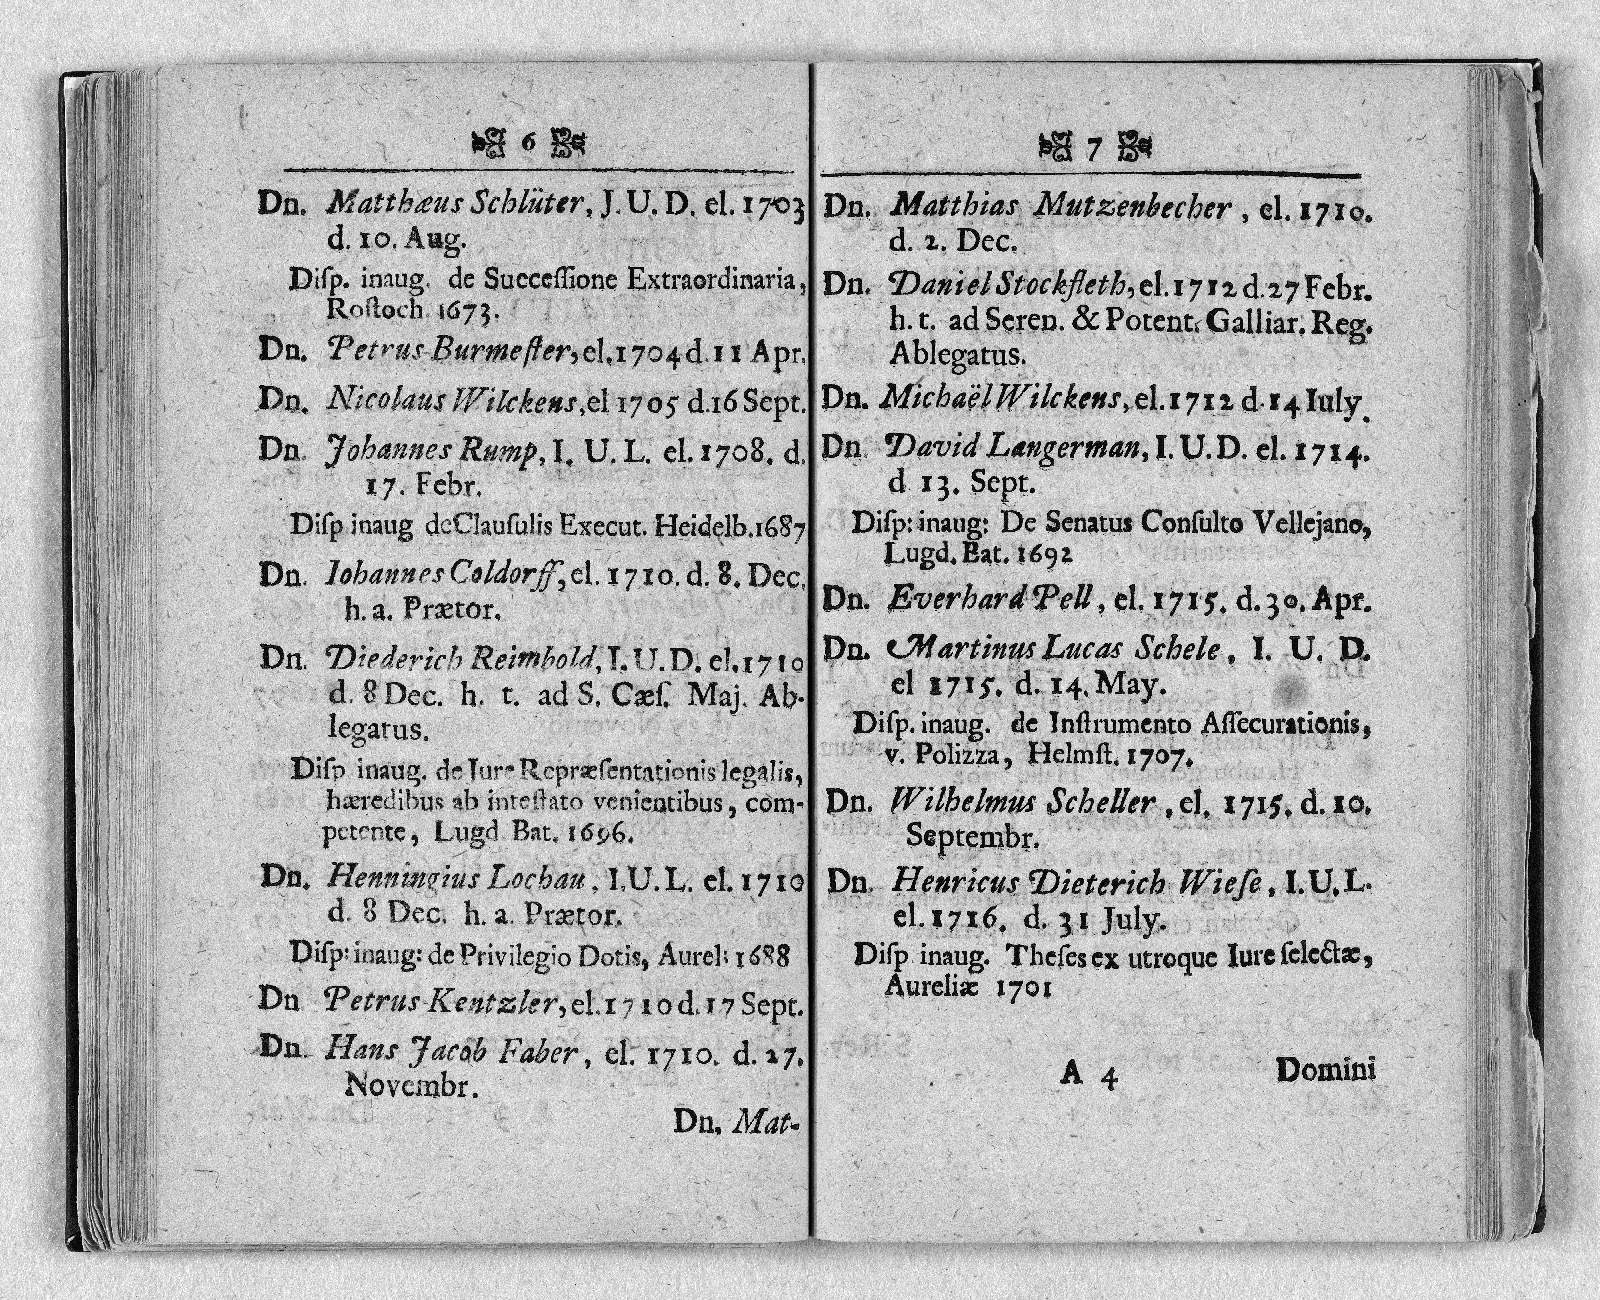 6
Dn. Matthæus Schlüter, J. U. D. el. 1703
d. 10. Aug.
Diſp. inaug. de Succeſſione Extraordinaria,
Roſtoch 1673.
Dn. Petrus Burmeſter, el. 1704 d. 11 Apr.
Dn. Nicolaus Wilckens, el 1705 d. 16 Sept.
Dn. Johannes Rump, I. U. L. el. 1708. d.
17. Febr.
Diſp inaug de Clauſulis Execut. Heidelb. 1687
Dn. Iohannes Coldorff, el. 1710. d. 8. Dec.
h. a. Prætor.
Dn. Diederich Reimbold, I. U. D. el. 1710
d. 8 Dec. h. t. ad S. Cæſ. Maj. Ab-
legatus.
Diſp inaug. de Iure Repræſentationis legalis,
hæredibus ab inteſtato venientibus, com-
petente, Lugd Bat. 1696.
Dn. Henningius Lochau, I. U. L. el. 1710
d. 8 Dec. h. a. Prætor.
Diſp: inaug: de Privilegio Dotis, Aurel: 1688
Dn Petrus Kentzler, el. 1710 d. 17 Sept.
Dn. Hans Jacob Faber, el. 1710. d. 27.
Novembr.
Dn. Mat-
7
Dn. Matthias Mutzenbecher, el. 1710.
d. 2. Dec.
Dn. Daniel Stockfleth, el. 1712 d. 27 Febr.
h. t. ad Seren. & Potent. Galliar. Reg.
Ablegatus.
Dn. Michaël Wilckens, el. 1712 d. 14 Iuly.
Dn David Langerman, I. U. D. el. 1714.
d 13. Sept.
Diſp: inaug: De Senatus Conſulto Vellejano,
Lugd. Bat. 1692
Dn. Everhard Pell, el. 1715. d. 30. Apr.
Dn. Martinus Lucas Schele, I. U. D.
el 1715. d. 14. May.
Diſp. inaug. de Inſtrumento Aſſecurationis,
v. Polizza, Helmſt. 1707.
Dn. Wilhelmus Scheller, el. 1715. d. 10.
Septembr.
Dn. Henricus Dieterich Wieſe, I. U. L.
el. 1716. d. 31 July.
Diſp inaug. Theſes ex utroque Iure ſelectæ,
Aureliæ 1701
A 4 Domini